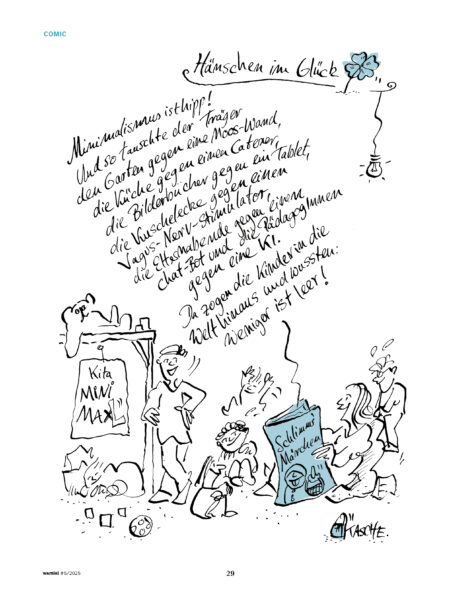 COMIC
Hänschen im Glück
Minimalismus ist hipp!
Und so tauschte der Träger
den Garten gegen eine Moos-Wand,
die Küche gegen einen Caterer,
die Bilderbücher gegen ein Tablet,
die Kuschelecke gegen einen
Vagus-Nerv-Stimulator,
die Elternabende gegen einen
Chat-Bot und die PädagogInnen
gegen eine KI.
Da zogen die Kinder in die
Welt hinaus und wussten:
Weniger ist leer!
Kita
MINI
MAX
Schlimms
Märchen
TASCHE.
wamiki #5/2025
29